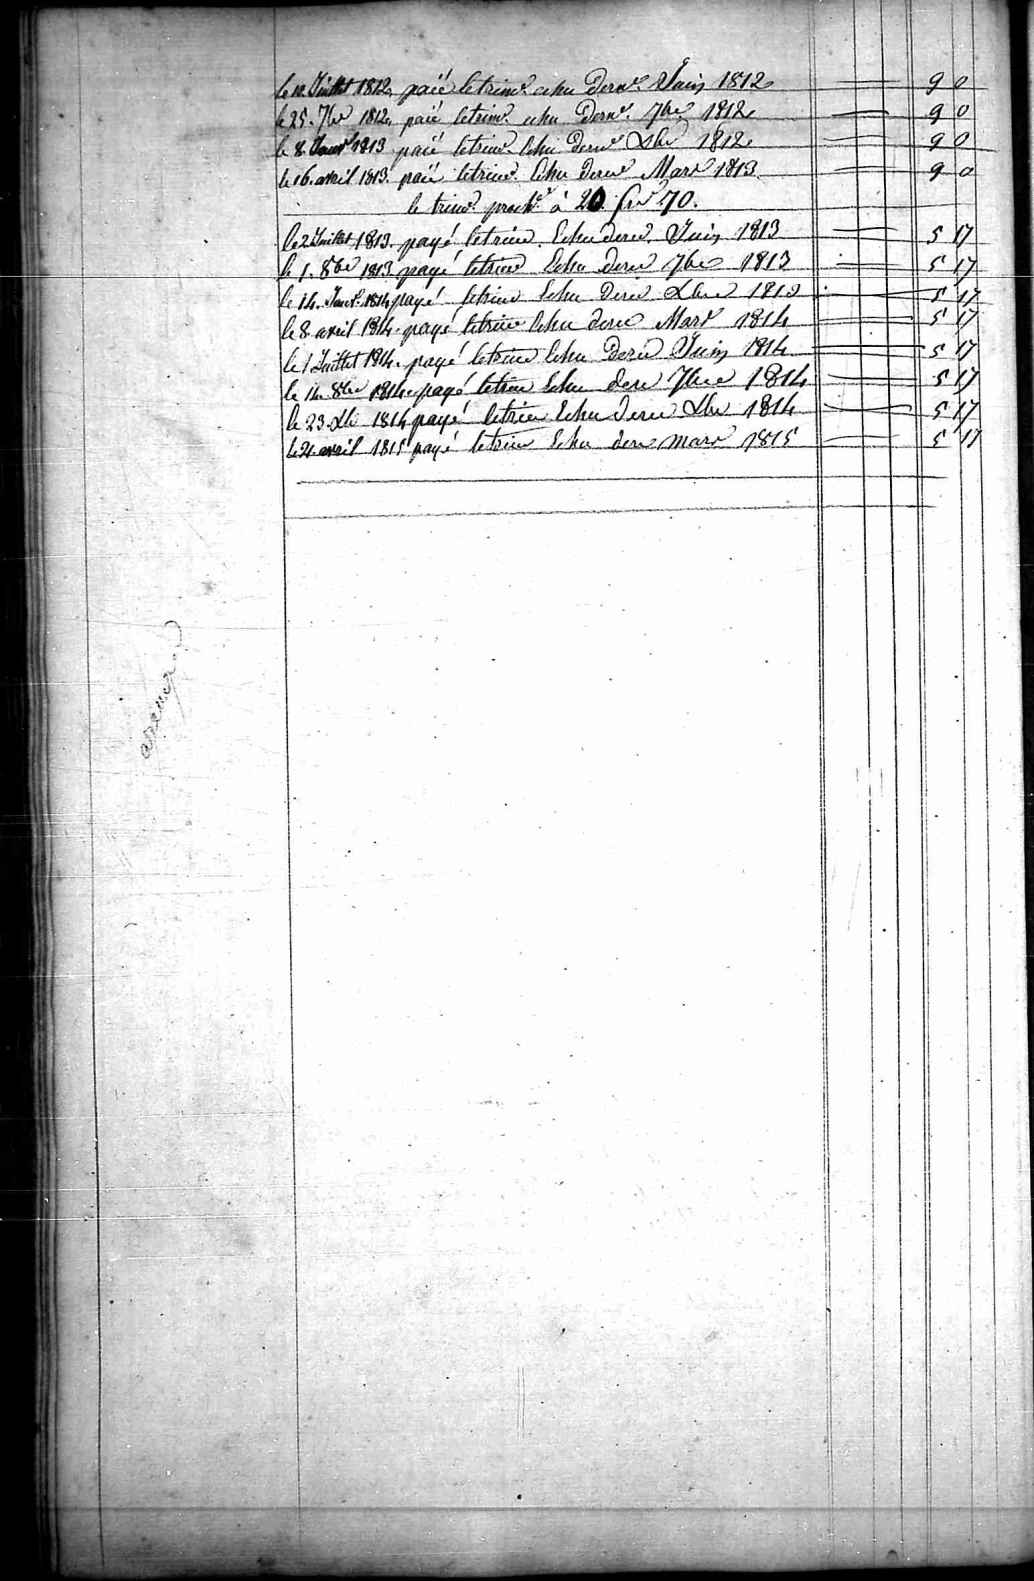 le 12 Juillet 1812, paié le trim.e echu dern.r Juin 1812 9 0
le 25. 7bre 1812, paié le trim.e echu dern.r 7bre 1812 9 0
le 8 Janv.r 1813 paié le trim.e Echu dern.r Xbre 1812 9 0
le 16. avril 1813. paié le trim.e Echu dern.r Mars 1813. 9 0
le trim.e proch.n à 20. frs 70.
le 2 Juillet 1813. payé le trim. Echu dern.r Juin 1813 5 17
le 1. 8bre 1813 payé le trim Echu dern 7bre 1813 5 17
le 14. Janv.r 1814 payé le trim Echu dern Xbre 1813 5 17
le 8 avril 1814. payé le trim Echu dern Mars 1814 5 17
le 1 Juillet 1814. payé le trim Echu dern Juin 1814 5 17
le 14 8bre 1814. payé le trim Echu dern 7bre 1814 5 17
le 23. Xb 1814 payé le trim Echu dern Xbre 1814 5 17
le 21 avril 1815 payé le trim Echu dern mars 1815 5 17